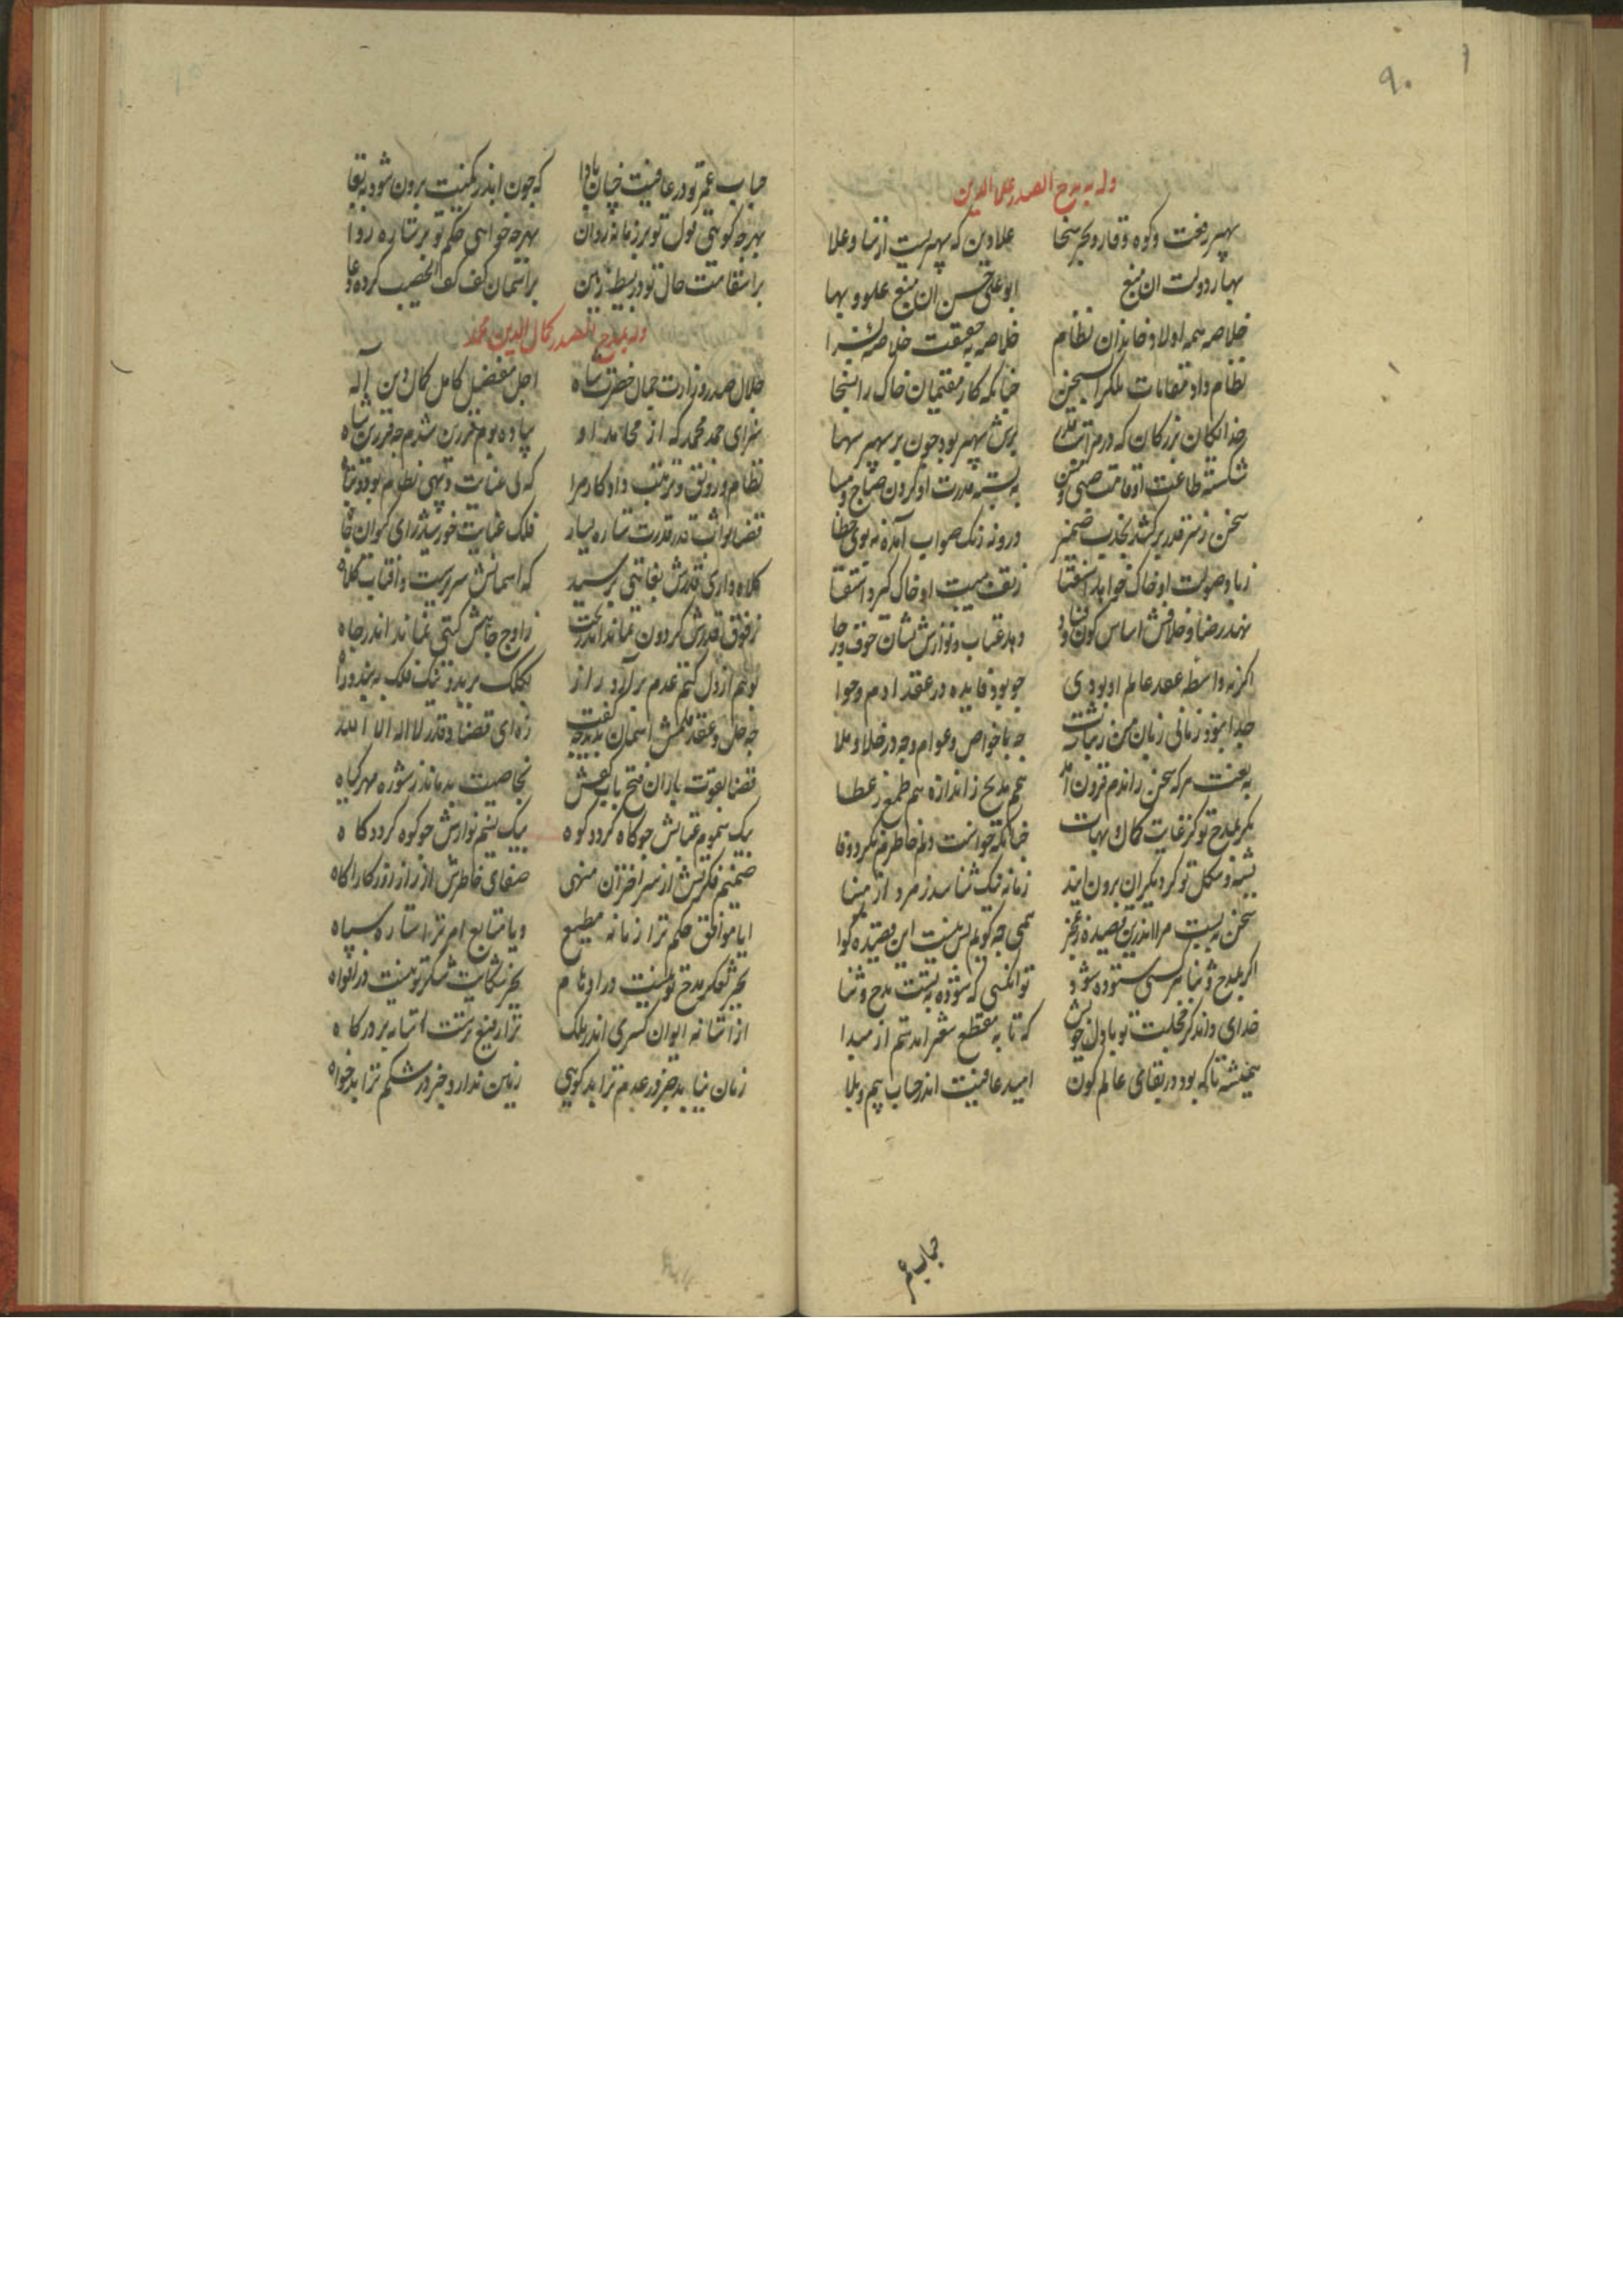 ۹۰
وله یمدح الصدر علاالدین
سپهر رفعت و کوه وقار و بحر سخا علاء دین که سپهریست از سنا و علا
بهار دولت ان منبع ابوعلی حسن ان منبع علو و بها
خلاصه همه اولاد خاندان نظام خلاصه به حقیقت خلاصه
نظام داد مقامات ملک را بسخن چنانکه کار مقیمان خاک را بسخا
خدایگان بزرگان که در مراتب قدر برش سپهر بود چون بر سپهر سها
شکسته طاعت او قامت صبی و مسن ببسته قدرت او گردن صباح و مسا
سخن ز سر قدر برکشد بجذب ضمیر درو نه رنگ صواب آمده نه بوی خطا
ز باد صولت او خاک خواهد استعفا ز تف هیبت او خاک گیرد استسقا
نهد رضا و خلافش اساس کون و فساد دهد عتاب و نوازش نشان خوف و رجا
اگر نه واسطه عقد عالم او بودی چو بود فایده در عقد ادم و حوا
جدا نبود زمانی زبان من ز ثنات چه با خواص و عوام و چه در خلا و ملا
به نعمت هر که سخن راندم فزون آمد هم مدیح ز اندازه هم طمع ز عطا
مگر بمدح تو کز غایت کمال و بهات چنانکه خواست دلم خاطرم نکرد وفا
بشبه و شکل تو گر دیگران برون ایند زمانه نیک شناسد زمرد از مینا
سخن بیست مرا اندرین قصیده ز عجز همی چه گویم بس نیست این قصیده گوا
اگر بمدح و ثنا هر کسی ستوده شود تو انکسی که ستوده بتست مدح و ثنا
خدای داند کز خجلت تو با دل خویش که تا به مقطع شعر امدستم از مبدا
همیشه تا که بود در بقای عالم کون امید عافیت اندر حساب بیم و بلا
حباب عمر
حباب عمر تو در عافیت چنان بادا که چون ابد ز کمیت برون شود ببقا
بهرچه گویی قول تو بر زمانه روان بهرچه خواهی حکم تو بر ستاره روا
بر استقامت حال تو در بسیط زمین بر اسمان کف کف الخضیب کرده دعا
وله یمدح الصدر کمال الدین محمد
جلال صدر وزارت جمال حضرت شاه اجل مفضل کامل کمال دین اله
سزای حمد محمد که از محامد او پیاده بودم فرزین شدم چه فرزین شاه
نظام و رونق و ترتیب داد کار مرا که بی عنایت و بی نظام بود و تباه
قضا توان قدر قدرت ستاره یسار فلک عنایت خورشید رای کیوان جاه
کلاه داری قدرش بغایتی برسید که اسمانش سریرست و افتاب کلاه
ز فوق قدرش گردون نماند اندر تحت ز اوج جاهش گیتی نماند اندر چاه
بوهم از دل کتم عدم برآرد راز بکلک برید و تنگ فلک ببندد راه
چه حل و عقد قلمش اسمان بدید چه گفت زه ای قضا و قدر لا اله الا الله
قضا بقوت باران فتح باب کفش بخاصیت بدماند ز شوره مهر گیاه
بیک سموم عتابش چو کاه گردد کوه بیک نسیم نوازش چو کوه گردد کاه
ضمیر فکرتش از سر اختران منهی صفای خاطرش از راز روزگار آگاه
ایا موافق حکم ترا زمانه مطیع و یا متابع امر ترا ستاره سپاه
بجز تفکر مدح تو نیست در اوهام بجز شکایت شکر تو نیست در افواه
از استانه ایوان کسری اندر ملک ترا رفیع ترست استانه درگاه
زمان نیابد جز در عدم ترا بدگوی زمین ندارد جز در شکم ترا بدخواه